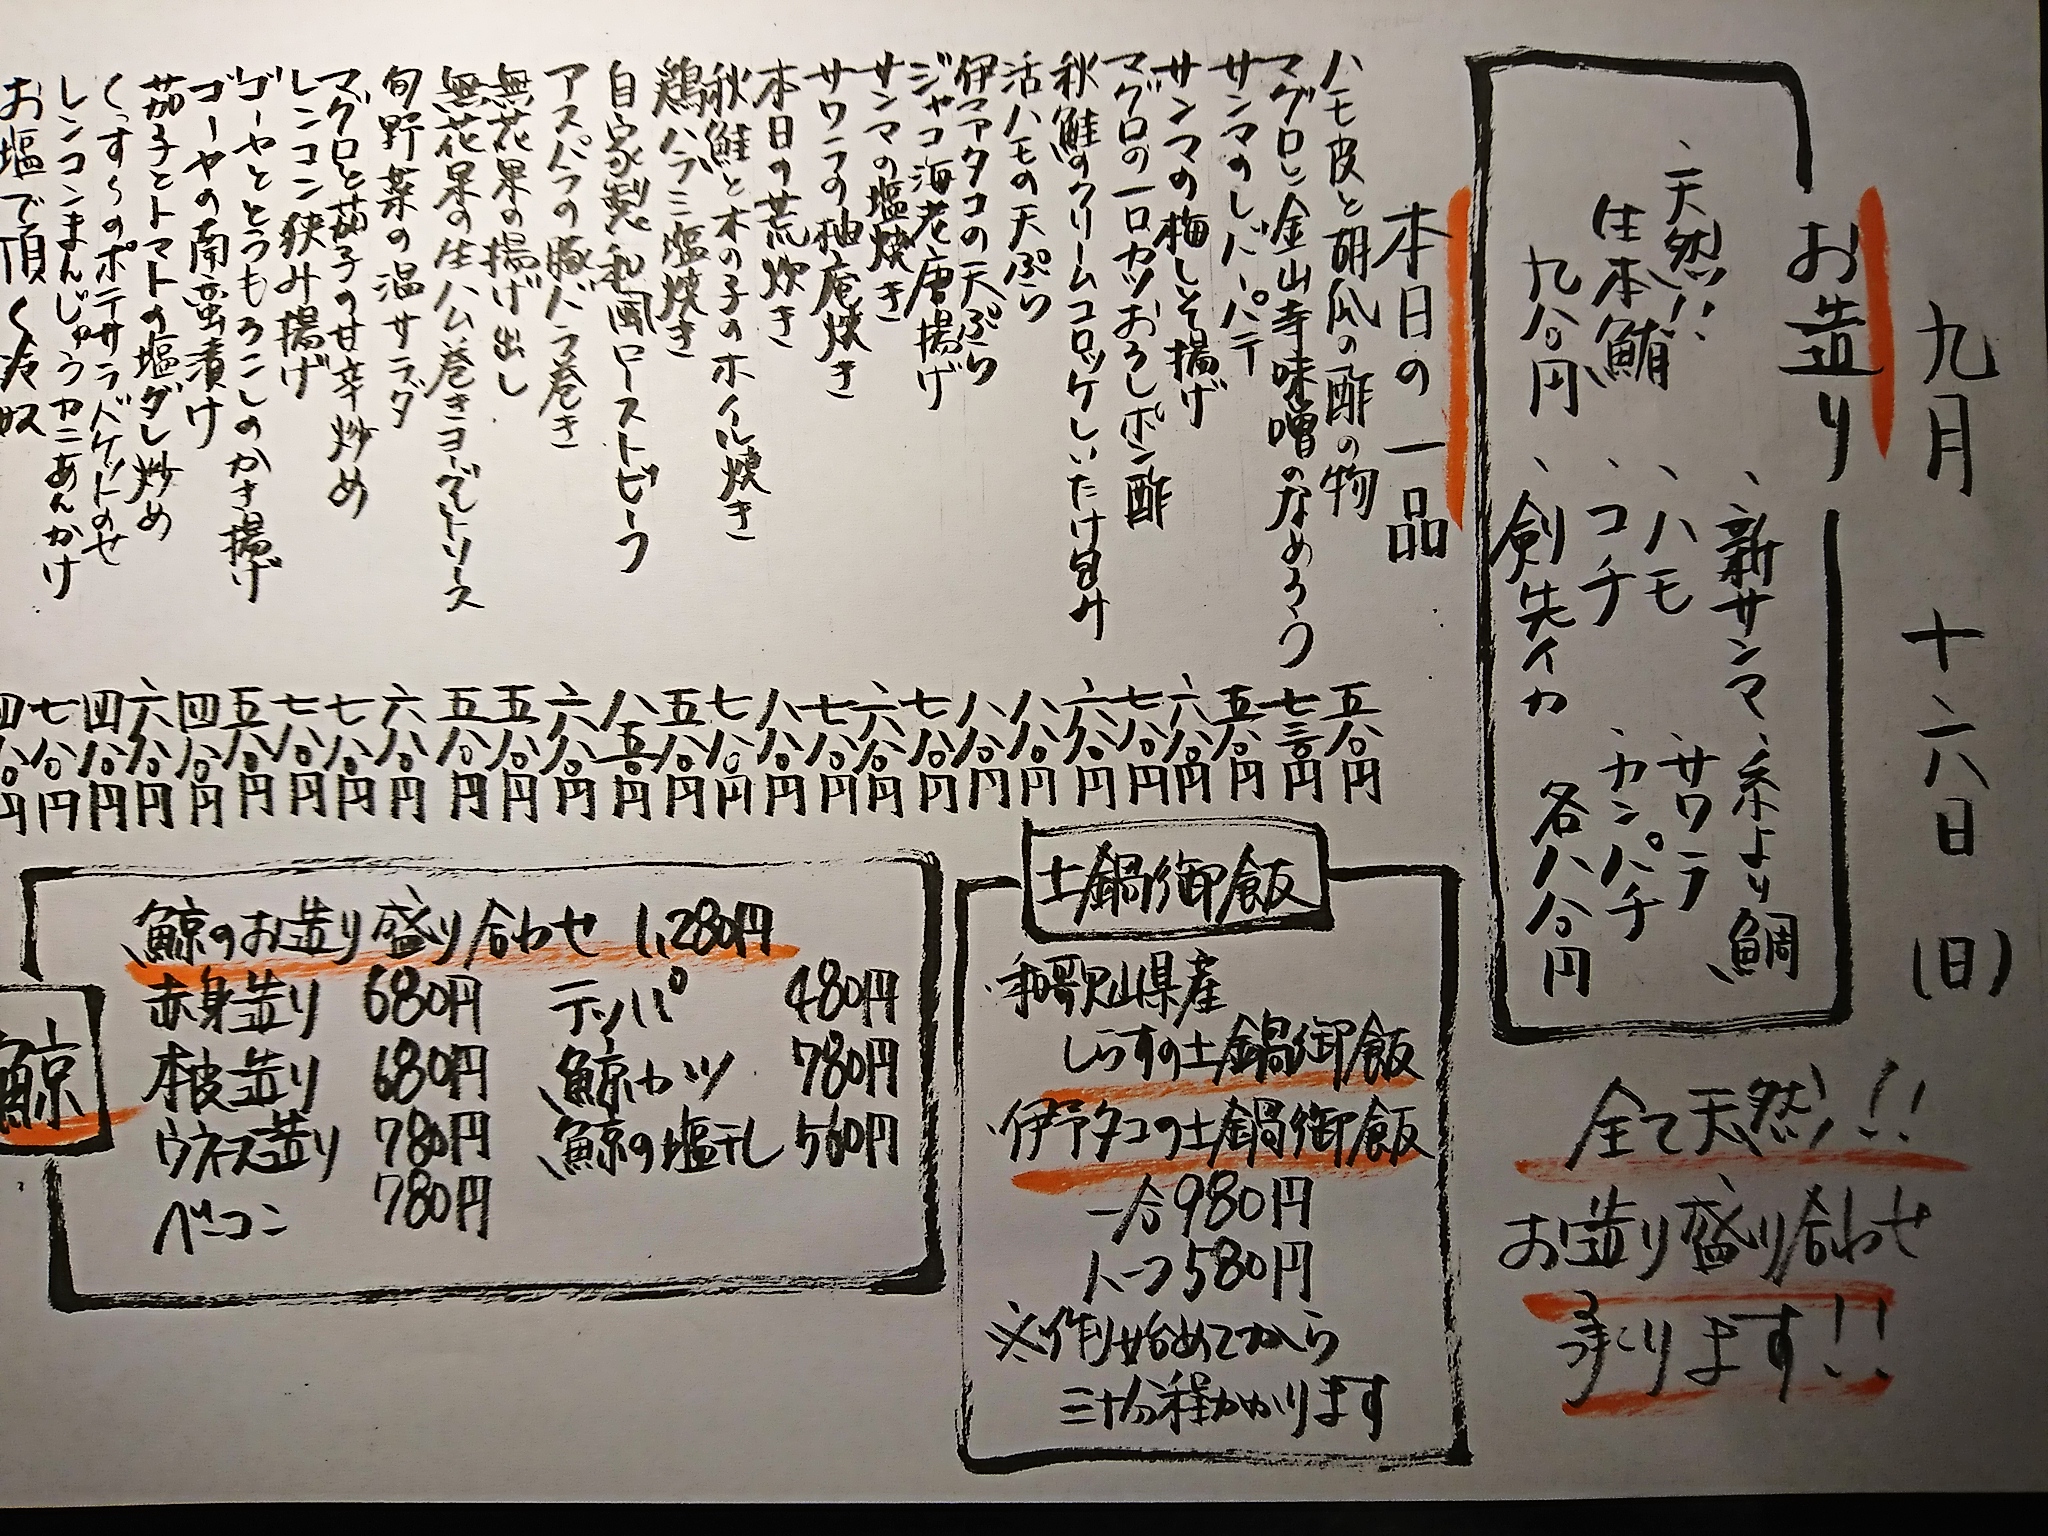 九月 十六日(日)
お造り
、新サンマ、糸より鯛
、ハモ、サワラ
、天然!!
、コチ、カンパチ
生本鮪
、剣先イカ 各八八〇円
九八〇円
全て天然!!
お造り盛り合わせ
承ります!!
本日の一品
ハモ皮と胡瓜の酢の物 五八〇円
マグロと金山寺味噌のなめろう 七三〇円
サンマのレバーパテ 五八〇円
サンマの梅しそ揚げ 六八〇円
マグロの一口カツおろしポン酢 七八〇円
秋鮭のクリームコロッケしいたけ包み 六八〇円
活ハモの天ぷら 八八〇円
伊予タコの天ぷら 八八〇円
ジャコ海老唐揚げ 七八〇円
サンマの塩焼き 六八〇円
サワラの柚庵焼き 七八〇円
本日の荒炊き 八八〇円
秋鮭と木の子のホイル焼き 七八〇円
鶏ハラミ塩焼き 五八〇円
自家製和風ローストビーフ 八五〇円
アスパラの豚バラ巻き 六八〇円
無花果の揚げ出し 五八〇円
無花果の生ハム巻きヨーグルトソース 五八〇円
旬野菜の温サラダ 六八〇円
マグロと茄子の甘辛炒め 七八〇円
レンコン狭み揚げ 七八〇円
ゴーヤととうもろこしのかき揚げ 五八〇円
ゴーヤの南蛮漬け 四八〇円
茄子とトマトの塩ダレ炒め 六八〇円
くっすぅのポテサラバケットのせ 四八〇円
レンコンまんじゅうカニあんかけ 七八〇円
お塩で頂く冷奴 四八〇円
土鍋御飯
・和歌山県産
しらすの土鍋御飯
・伊予タコの土鍋御飯
一合980円
ハーフ580円
※作り始めてから
三十分程かかります
鯨
鯨のお造り盛り合わせ 1,280円
赤身造り 680円 テッパ 480円
本皮造り 680円 鯨カツ 780円
ウネス造り 780円 鯨の塩干し 560円
ベーコン 780円